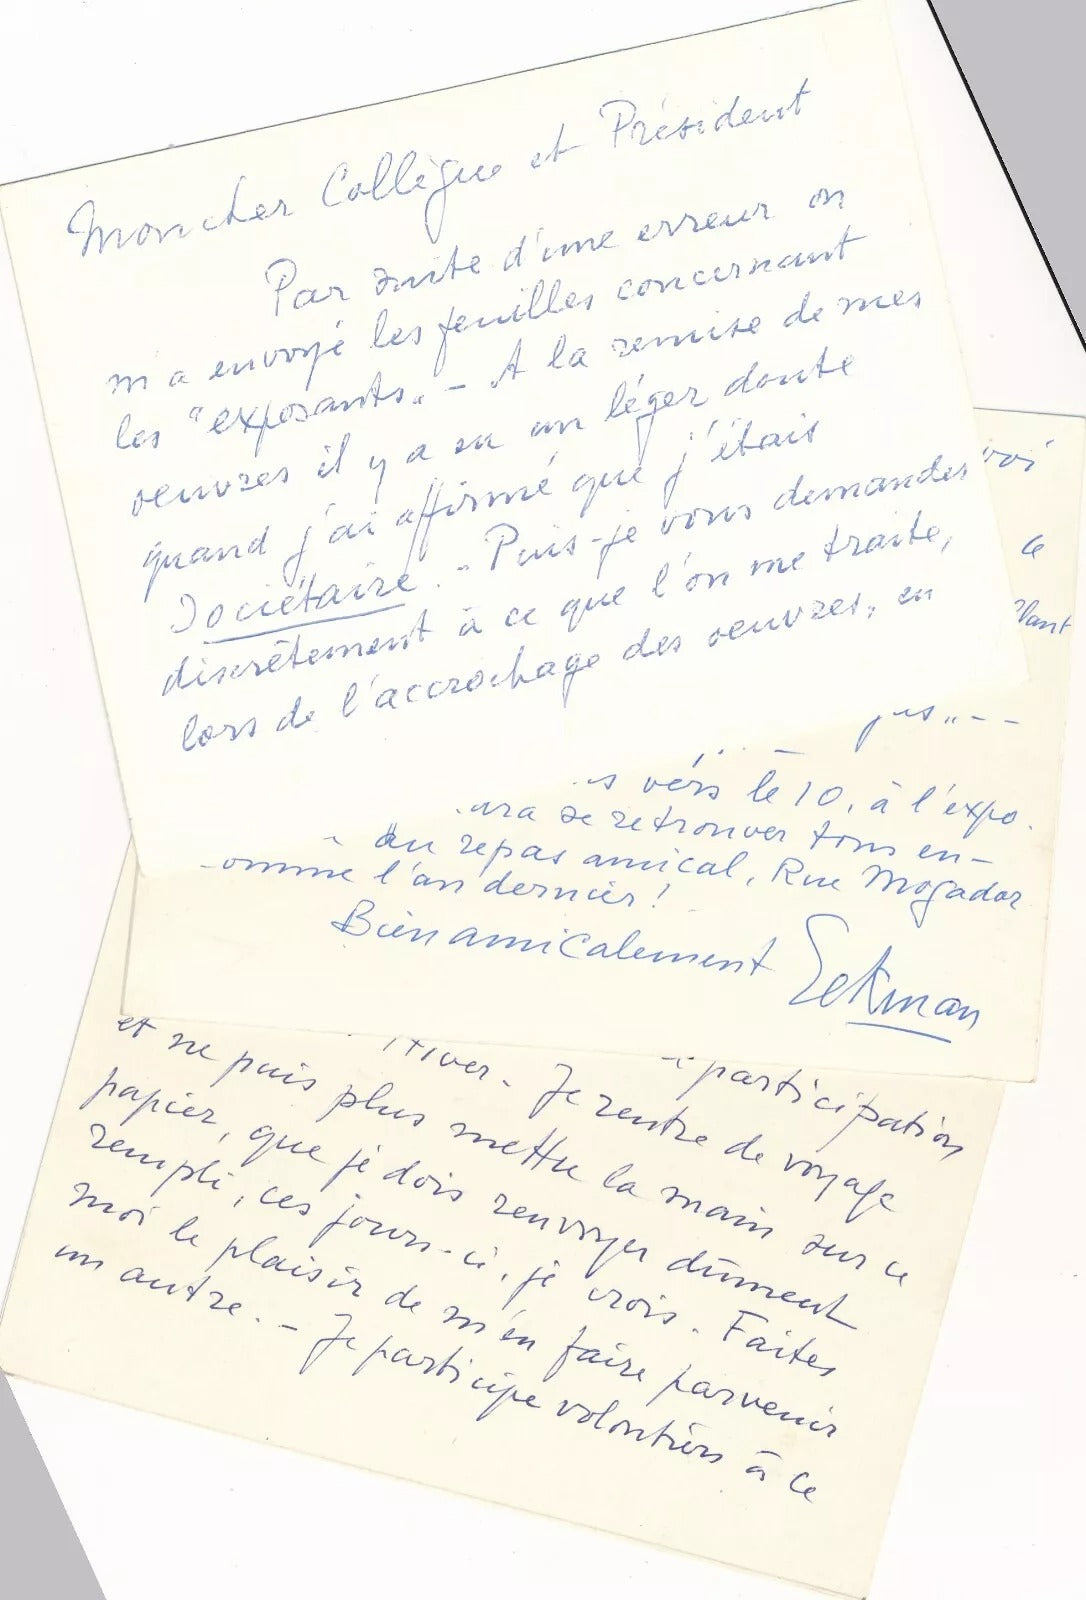 Mon cher Collègue et Président
Par suite d'une erreur on
m'a envoyé les feuilles concernant
les "exposants„ - A la remise de mes
oeuvres il y a eu un léger doute
quand j'ai affirmé que j'étais
Sociétaire. - Puis-je vous demander
discrètement à ce que l'on me traite,
lors de l'accrochage des oeuvres, en
ce
vers le 10, à l'expo.
se retrouver tous en-
au repas amical, Rue Mogador
l'an dernier!
Bien amicalement
participation
Je rentre de voyage
et ne puis plus mettre la main sur ce
papier, que je dois renvoyer dûment
rempli, ces jours-ci, je crois. Faites
moi le plaisir de m'en faire parvenir
un autre. - Je participe volontiers à ce